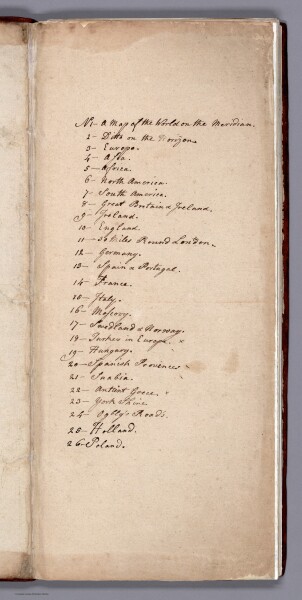 No 1 – A Map of the World on the Meridian.
2 – Ditto on the Horizon
3 – Europe.
4 – Asia.
5 – Africa.
6 – North America.
7 – South America.
8 – Great Britain & Ireland.
9 – Ireland.
10 – England.
11 – 30 Miles Round London.
12 – Germany.
13 – Spain & Portugal.
14 – France.
15 – Italy.
16 – Moscovy.
17 – Swedland & Norway.
18 – Turkey in Europe.
19 – Hungary.
20 – Spanish Provinces
21 – Suabia.
22 – Antient Greece.
23 – York Shire
24 – Ogilby's Roads.
25 – Holland.
26 – Poland.